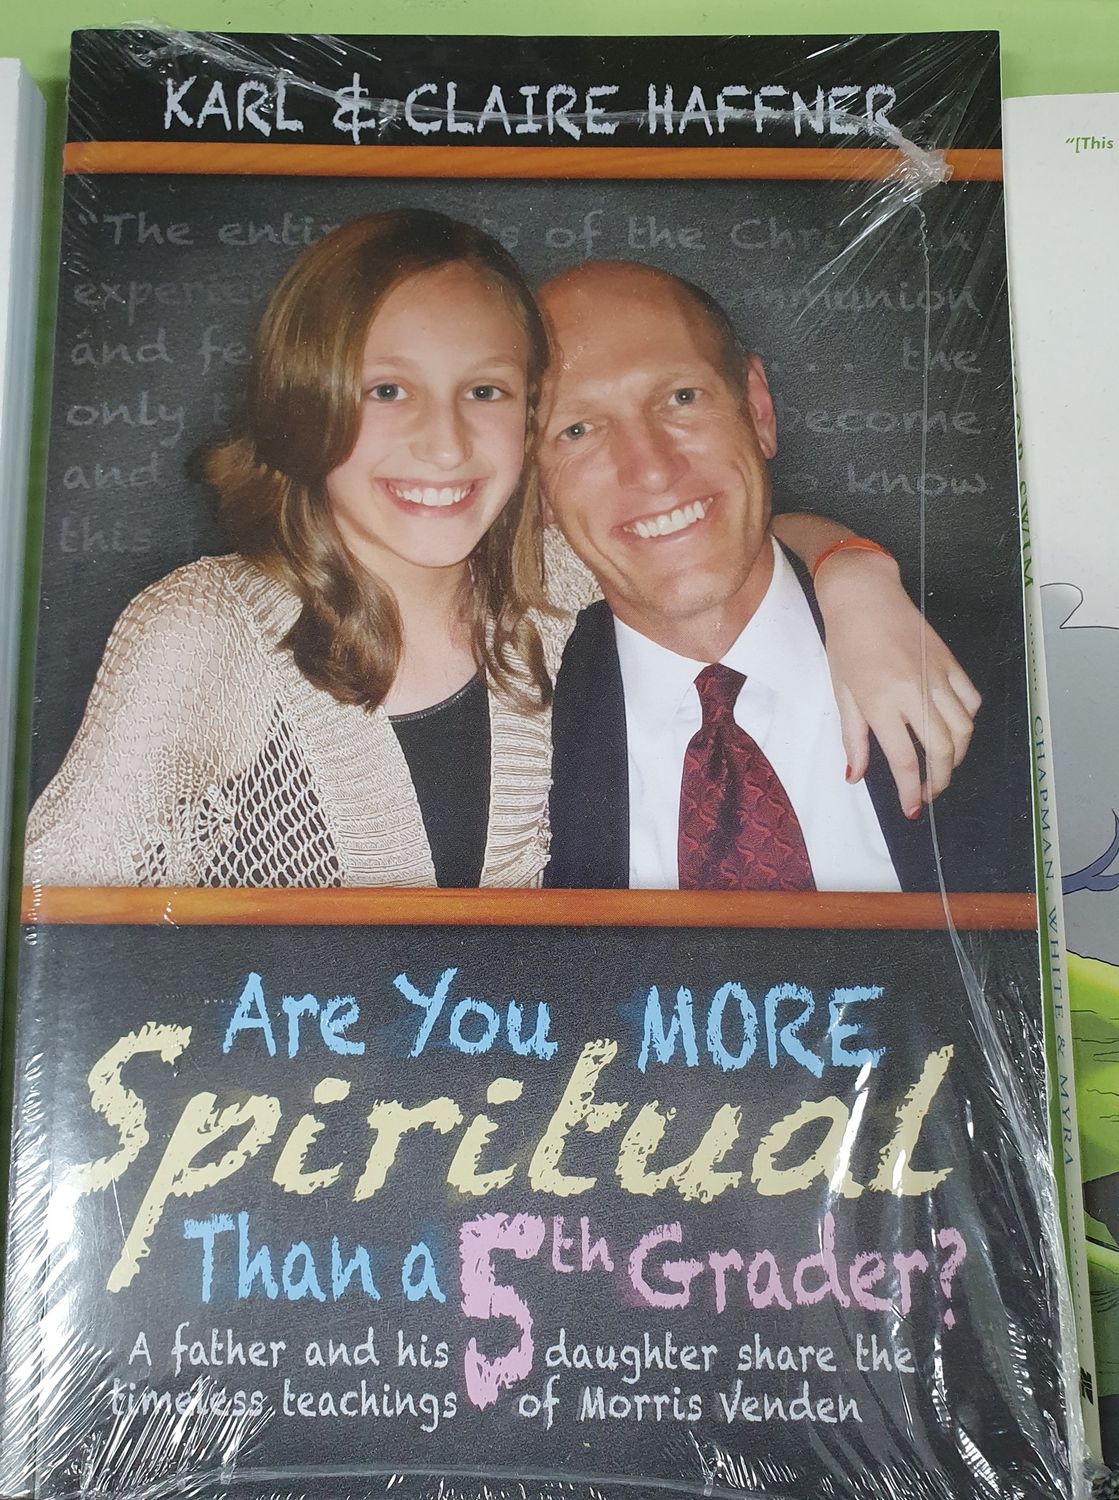 KARL & CLAIRE HAFFNER
"The of the
and
only become
and know
this
Are You MORE
Spiritual
Than a 5th Grader?
A father and his daughter share the
timeless teachings of Morris Venden
"[This
CHAPMAN, WHITE & MYRA